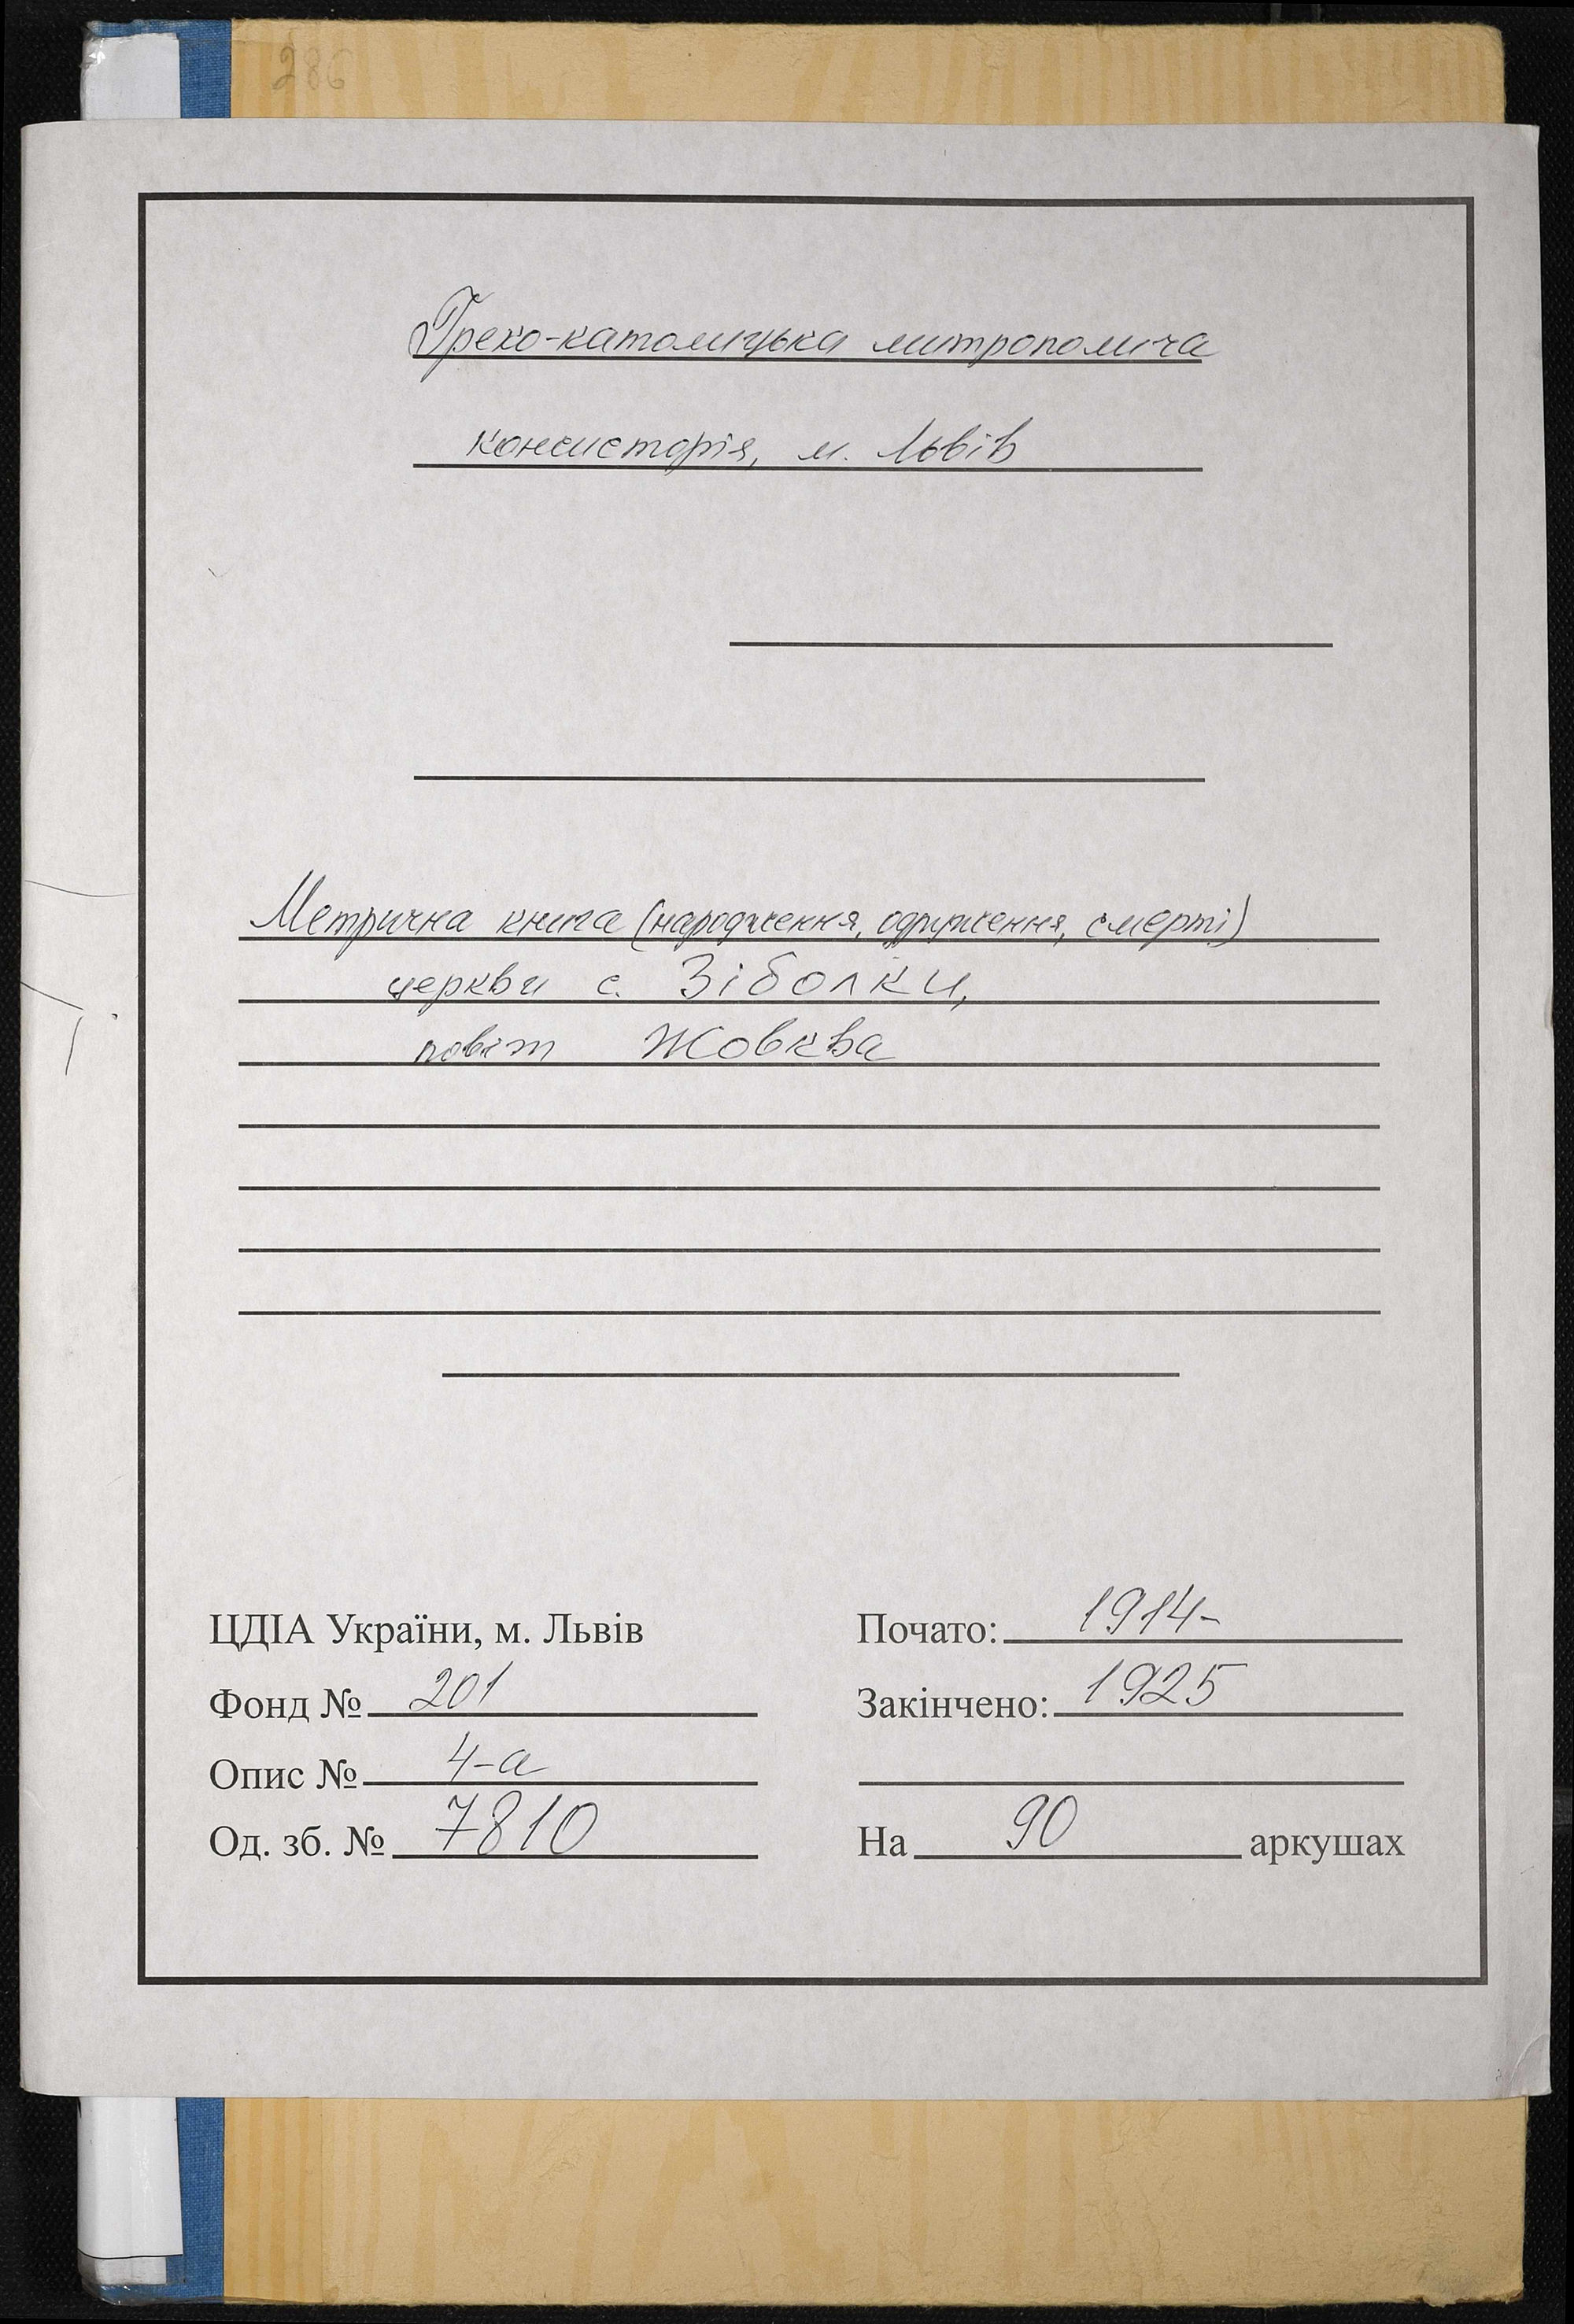 286
Греко-католицька митрополича
консисторія, м. Львів
Метрична книга (народження, одруження, смерті)
церкви с. Зіболки,
повіт Жовква
ЦДІА України, м. Львів
Фонд № 201
Опис № 4-а
Од. зб. № 7810
Почато: 1914-
Закінчено: 1925
На 90 аркушах